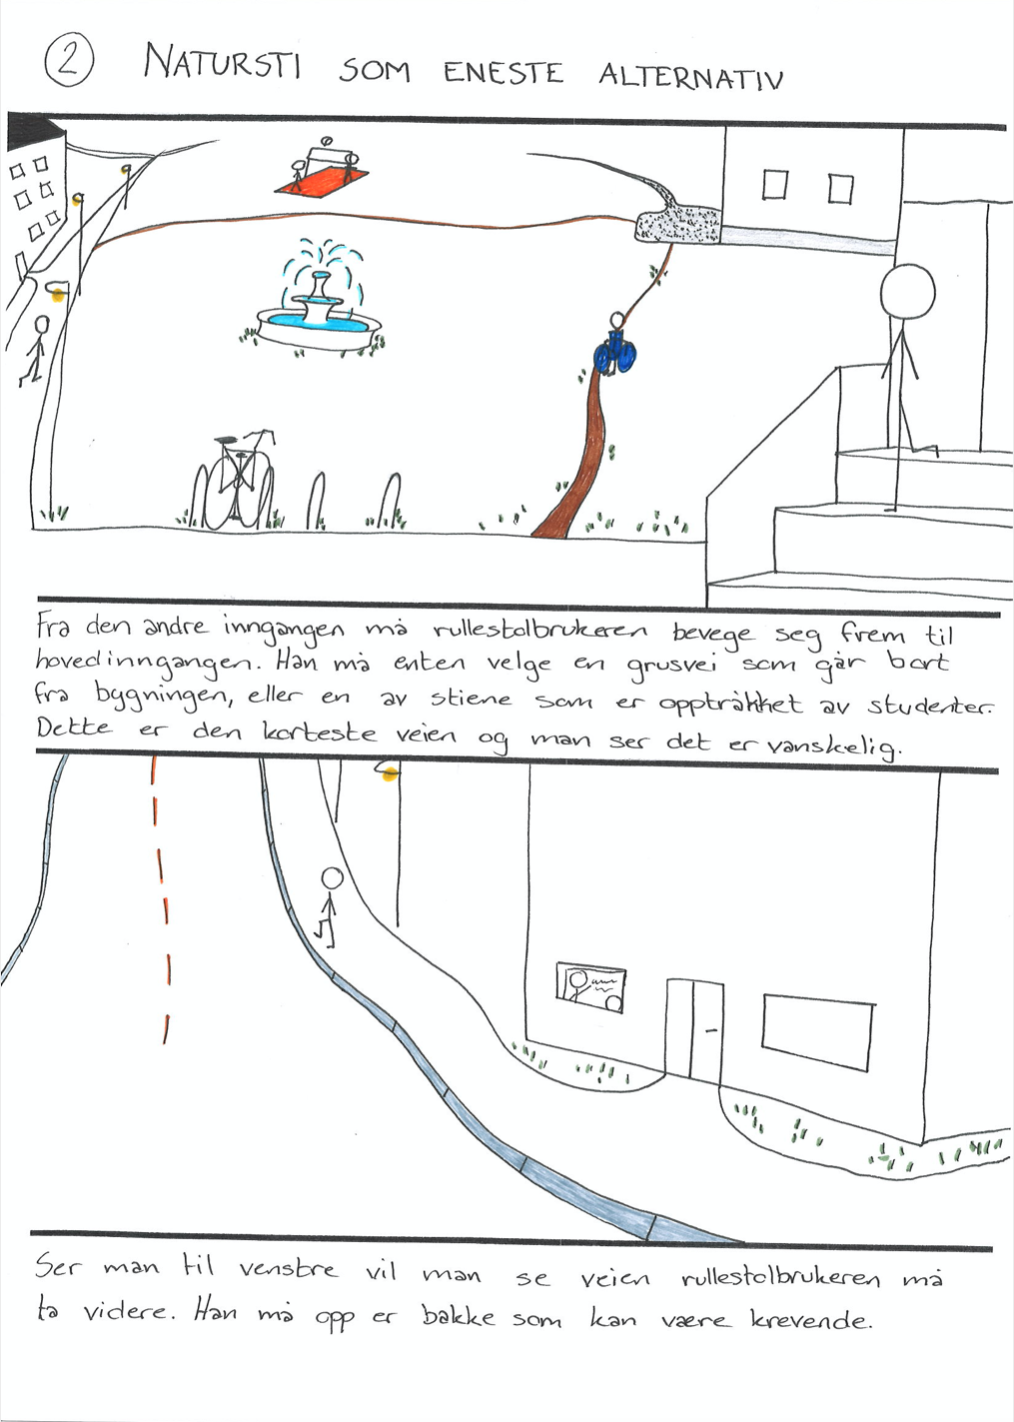 2 NATURSTI SOM ENESTE ALTERNATIV
Fra den andre inngangen må rullestolbrukeren bevege seg frem til
hovedinngangen. Han må enten velge en grusvei som går bort
fra bygningen, eller en av stiene som er opptråkket av studenter.
Dette er den korteste veien og man ser det er vanskelig.
Ser man til venstre vil man se veien rullestolbrukeren må
ta videre. Han må opp er bakke som kan være krevende.